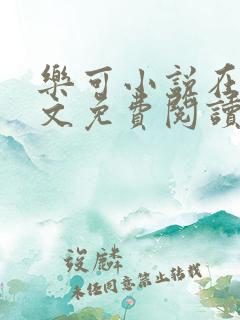 樂可小説在
文免費閱讀
渽麟
未经同意禁止转载